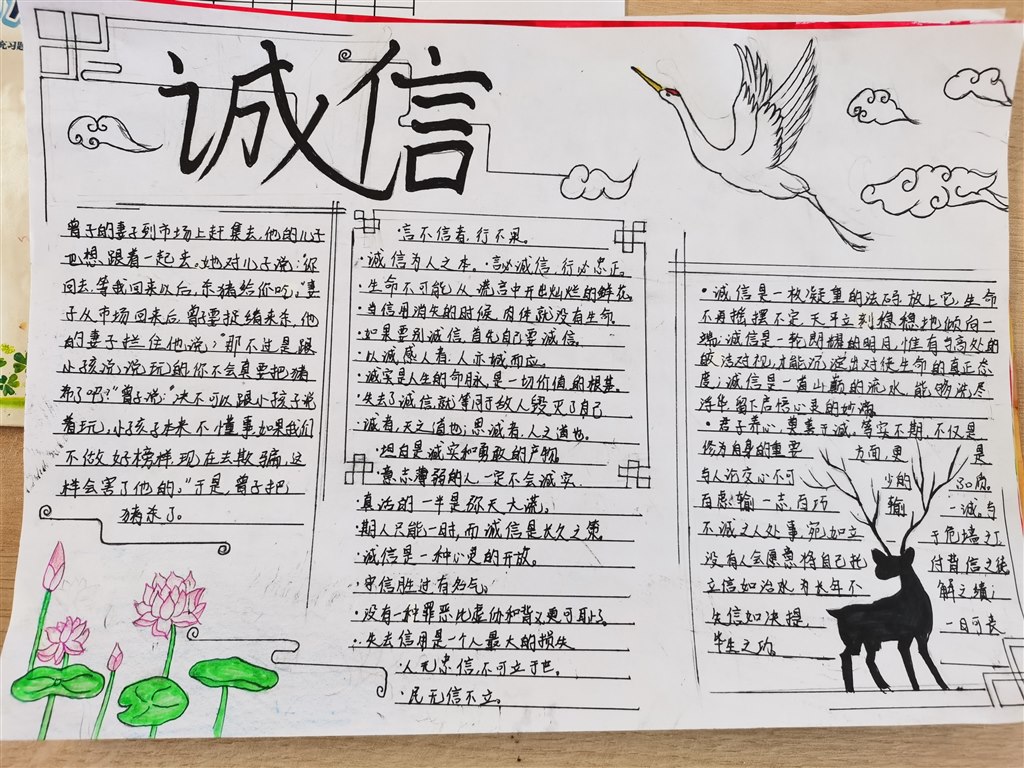 诚信
曾子的妻子到市场上赶集去，他的儿子
也想跟着一起去。她对儿子说：“你
回去，等我回来以后，杀猪给你吃。”妻
子从市场回来后，曾子要捉猪来杀，他
的妻子拦住他说：“那不过是跟
小孩说说玩的你不会真要把猪
杀了吧？”曾子说：“决不可以跟小孩子说
着玩，小孩子本来不懂事，如果我们
不做好榜样，现在去欺骗，这
样会害了他的。”于是，曾子把
猪杀了。
言不信者，行不果。
·诚信为人之本。·言必诚信，行必忠正。
·生命不可能从谎言中开出灿烂的鲜花。
·当信用消失的时候，肉体就没有生命
·如果要别诚信，首先自己要诚信。
·以诚感人者，人亦诚而应。
·诚实是人生的命脉，是一切价值的根基。
·失去了诚信，就等同于敌人毁灭了自己
·诚者，天之道也；思诚者，人之道也。
·坦白是诚实和勇敢的产物
·意志薄弱的人，一定不会诚实
·真话的一半是弥天大谎。
·期人只能一时，而诚信是长久之策
·诚信是一种心灵的开放。
·守信胜过有名气。
·没有一种罪恶比虚伪和背义更可耻了
·失去信用是一个人最大的损失
·人无忠信，不可立于世。
·民无信不立。
·诚信是一枚凝重的法码，放上它，生命
不再摇摆不定，天平立刻稳稳地倾向一
端；诚信是一轮朗耀的明月，惟有与高处的
皎洁对视，才能沉淀出对待生命的真正态
度；诚信是一直山巅的流水，能够洗尽
浮华，留下启悟心灵的妙谛
·君子养心，莫善于诚。笃实不期，不仅是
修为自身的重要 方面，更 是
与人论交心不可 少的
百虑输一志，百巧 输 一诚。与
不诚之人处事，宛如立 于危墙之下
没有人会愿意将自己托 付背信之徒
立信如治水，为长年不 解之绩；
失信如决堤， 一日可丧
毕生之功。